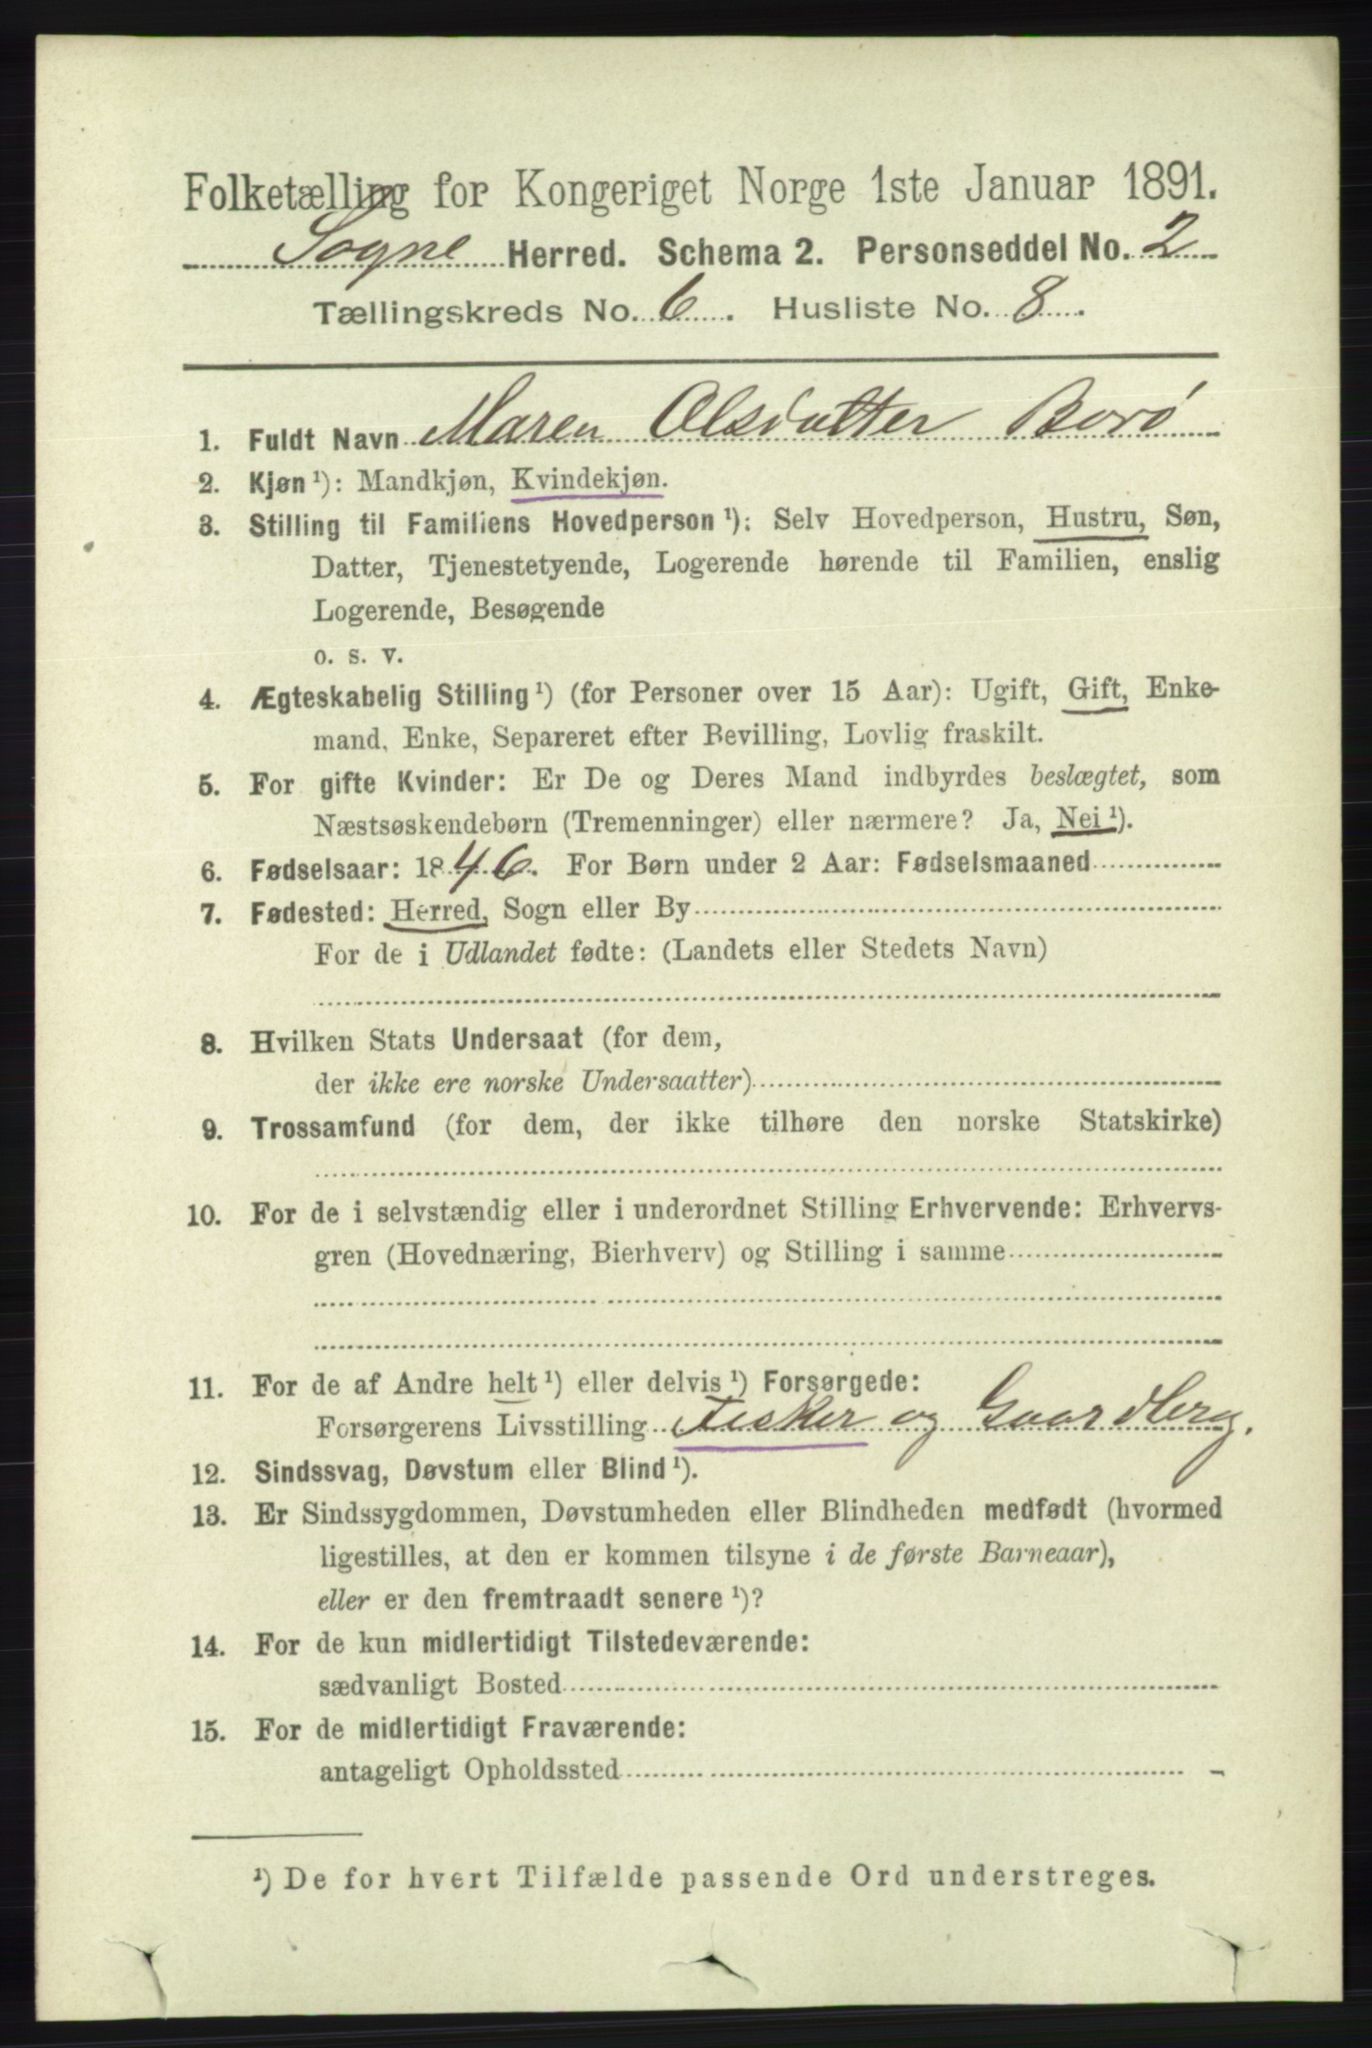 Folketælling for Kongeriget Norge 1ste Januar 1891.
Sogne Herred. Schema 2. Personseddel No. 2
Tællingskreds No. 6. Husliste No. 8.
1. Fuldt Navn Maren Olsdatter Borø
2. Kjøn ¹): Mandkjøn, Kvindekjøn.
3. Stilling til Familiens Hovedperson ¹): Selv Hovedperson, Hustru, Søn,
Datter, Tjenestetyende, Logerende hørende til Familien, enslig
Logerende, Besøgende
o. s. v.
4. Ægteskabelig Stilling ¹) (for Personer over 15 Aar): Ugift, Gift, Enke-
mand, Enke, Separeret efter Bevilling, Lovlig fraskilt.
5. For gifte Kvinder: Er De og Deres Mand indbyrdes beslægtet, som
Næstsøskendebørn (Tremenninger) eller nærmere? Ja, Nei ¹).
6. Fødselsaar: 1846. For Børn under 2 Aar: Fødselsmaaned
7. Fødested: Herred, Sogn eller By
For de i Udlandet fødte: (Landets eller Stedets Navn)
8. Hvilken Stats Undersaat (for dem,
der ikke ere norske Undersaatter)
9. Trossamfund (for dem, der ikke tilhøre den norske Statskirke)
10. For de i selvstændig eller i underordnet Stilling Erhvervende: Erhvervs-
gren (Hovednæring, Bierhverv) og Stilling i samme
11. For de af Andre helt ¹) eller delvis ¹) Forsørgede:
Forsørgerens Livsstilling Fisker og Gaardbrg.
12. Sindssvag, Døvstum eller Blind ¹).
13. Er Sindssygdommen, Døvstumheden eller Blindheden medfødt (hvormed
ligestilles, at den er kommen tilsyne i de første Barneaar),
eller er den fremtraadt senere ¹)?
14. For de kun midlertidigt Tilstedeværende:
sædvanligt Bosted
15. For de midlertidigt Fraværende:
antageligt Opholdssted
¹) De for hvert Tilfælde passende Ord understreges.